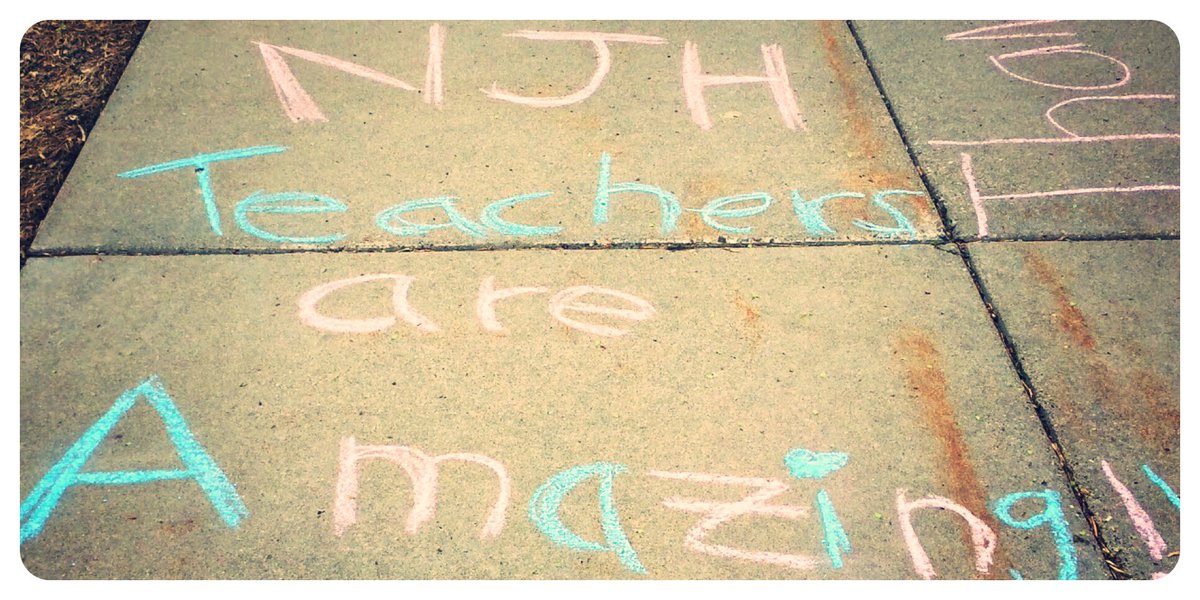 NJH
Teachers
are
Amazing!!